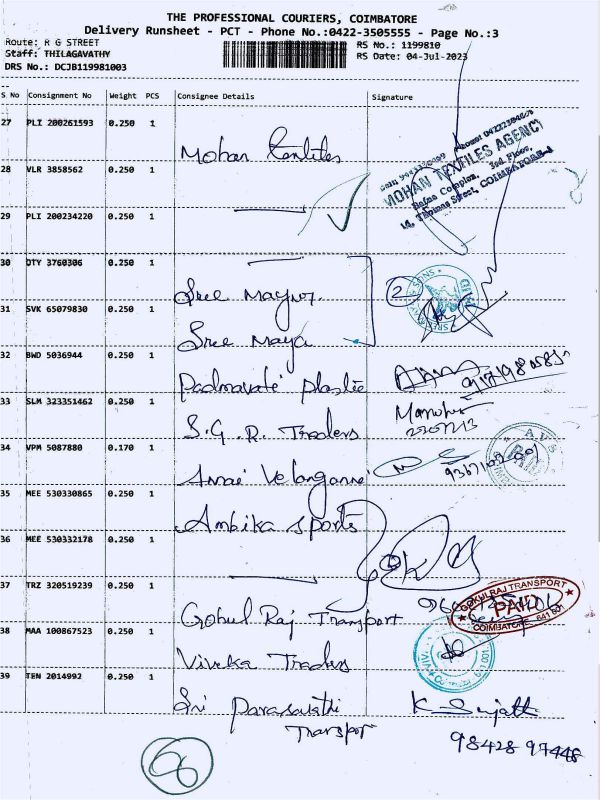 THE PROFESSIONAL COURIERS, COIMBATORE
Delivery Runsheet - PCT - Phone No.:0422-3505555 - Page No.:3
Route: R G STREET RS No.: 1199810
Staff: THILAGAVATHY RS Date: 04-Jul-2023
DRS No.: DCJB119981003
S No Consignment No Weight PCS Consignee Details Signature
27 PLI 200261593 0.250 1 Mohan Textiles
MOHAN TEXTILES AGENCY
Rajna Complex, 3rd Floor,
14, Thomas Street, COIMBATORE-1
28 VLR 3858562 0.250 1
29 PLI 200234220 0.250 1
30 DTY 3760306 0.250 1 Sree Mayur 2
31 SVK 65079830 0.250 1 Sree Maya
32 BWD 5036944 0.250 1 Padmavati plastic
33 SLM 323351462 0.250 1 S.G.R. Traders
34 VPM 5087880 0.170 1 Annai Velanganni
35 MEE 530330865 0.250 1 Ambika sports
36 MEE 530332178 0.250 1
37 TRZ 320519239 0.250 1 Gokul Raj Transport
GOKULRAJ TRANSPORT
PAID
COIMBATORE - 641 001
38 MAA 100867523 0.250 1 Viveka Traders
39 TEN 2014992 0.250 1 Sri Parasakthi K Sujatha
Transport
98428 97448
66